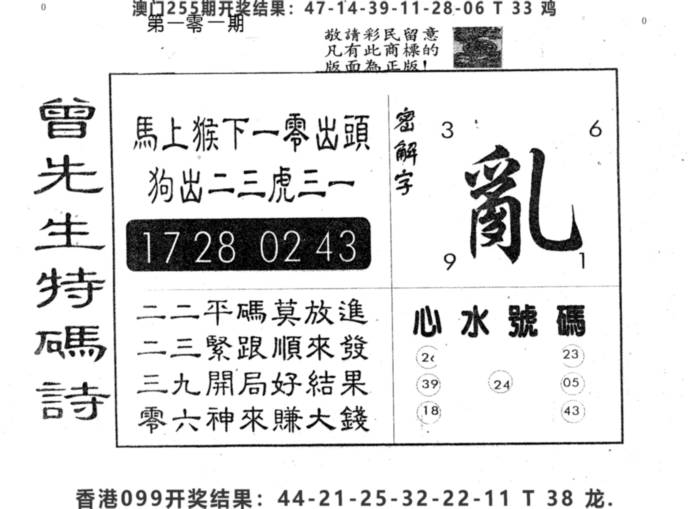 0
澳门255期开奖结果：47-14-39-11-28-06 T 33 鸡
第一零一期
0
敬請彩民留意
凡有此商標的
版面為正版！
曾先生特碼詩
馬上猴下一零出頭
狗出二三虎三一
17 28 02 43
二二平碼莫放進
二三緊跟順來發
三九開局好結果
零六神來賺大錢
密解字
3 6
亂
9 1
心水號碼
23
39 24 05
18 43
香港099开奖结果：44-21-25-32-22-11 T 38 龙.